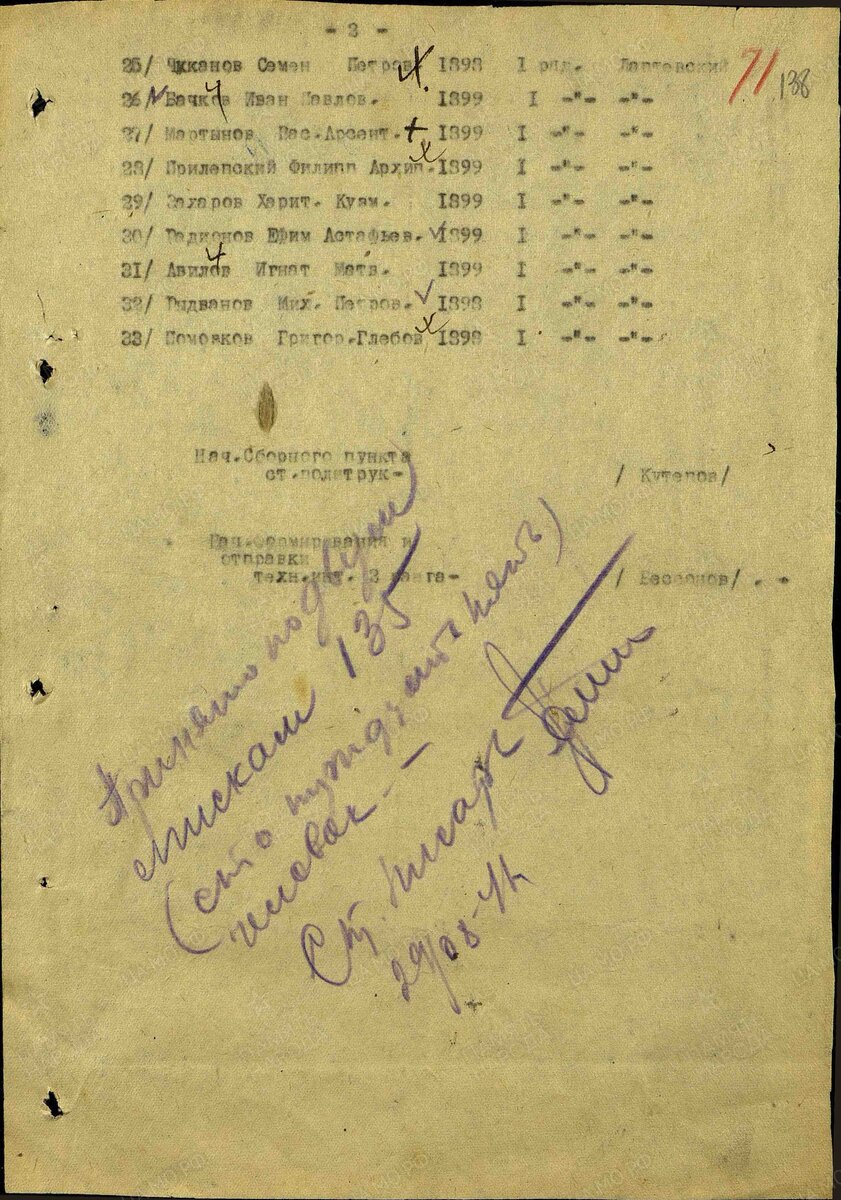 - 2 -
25/ Чиканов Семен Петров. 1898 I ряд. Лаптевский
26/ Бачков Иван Павлов. 1899 I -"- -"-
27/ Мартынов Вас.Арсент. 1899 I -"- -"-
28/ Прилепский Филипп Архип. 1899 I -"- -"-
29/ Захаров Харит. Кузм. 1899 I -"- -"-
30/ Радионов Ефим Астафьев. 1899 I -"- -"-
31/ Авилов Игнат Матв. 1899 I -"- -"-
32/ Рыдванов Мих. Петров. 1898 I -"- -"-
33/ Помовков Григор.Глебов 1898 I -"- -"-
71
138
Нач.Сборного пункта
ст.политрук- / Кутепов/
Нач.Формирования и
отправки
техн.инт. 2 ранга- / Бессонов/
Принято по двум
спискам 135
(сто тридцать пять)
человек —
Ст. писарь
29/08-41